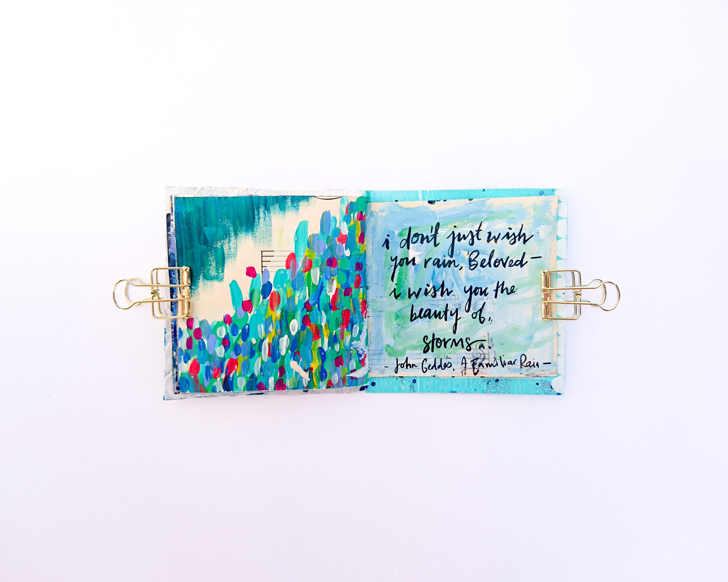 i don't just wish
you rain, Beloved—
i wish you the
beauty of
storms...
- John Geddes, A Familiar Rain —